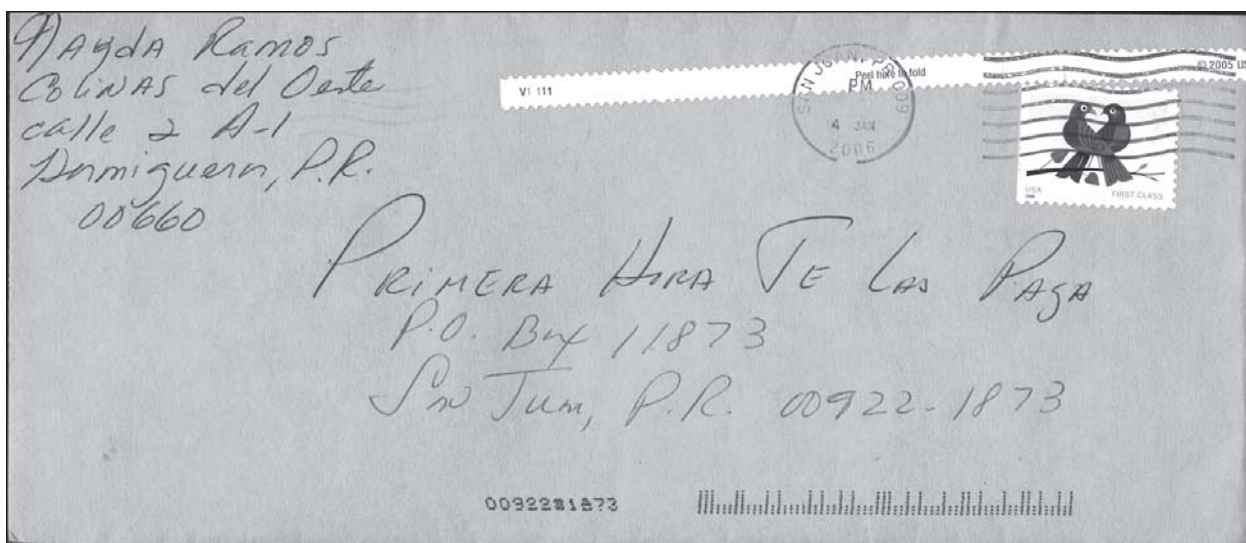 Magda Ramos
Colinas del Oeste
calle 2 A-1
Hormigueros, P.R.
00660
V1 111
Peel here to fold
© 2005 US
SAN JUAN, PR 009
PM
4 JAN
2006
USA
FIRST CLASS
Primera Hora Te Las Paga
P.O. Box 11873
San Juan, P.R. 00922-1873
00922#1873